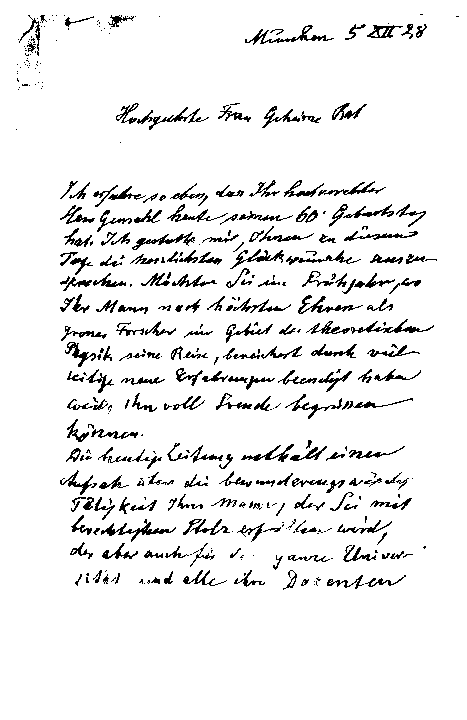 München 5 XII 28
Hochgeehrte Frau Geheime Rat
Ich erfahre so eben, dass Ihr hochverehrter
Herr Gemahl heute seinen 60. Geburtstag
hat. Ich gestatte mir, Ihnen zu diesem
Tage die herzlichsten Glückwünsche auszu
sprechen. Möchten Sie im Frühjahr, wo
Ihr Mann nach höchsten Ehren als
grosser Forscher im Gebiet der theoretischen
Physik seine Reise, bereichert durch viel
seitige neue Erfahrungen beendigt haben
wird, ihn voll Freude begrüssen
können.
Die heutige Zeitung enthält einen
Aufsatz über die bewunderungswürdige
Tätigkeit Ihres Mannes, der Sie mit
berechtigtem Stolz erfüllen wird,
der aber auch für die ganze Univer
sität und alle ihre Dozenten